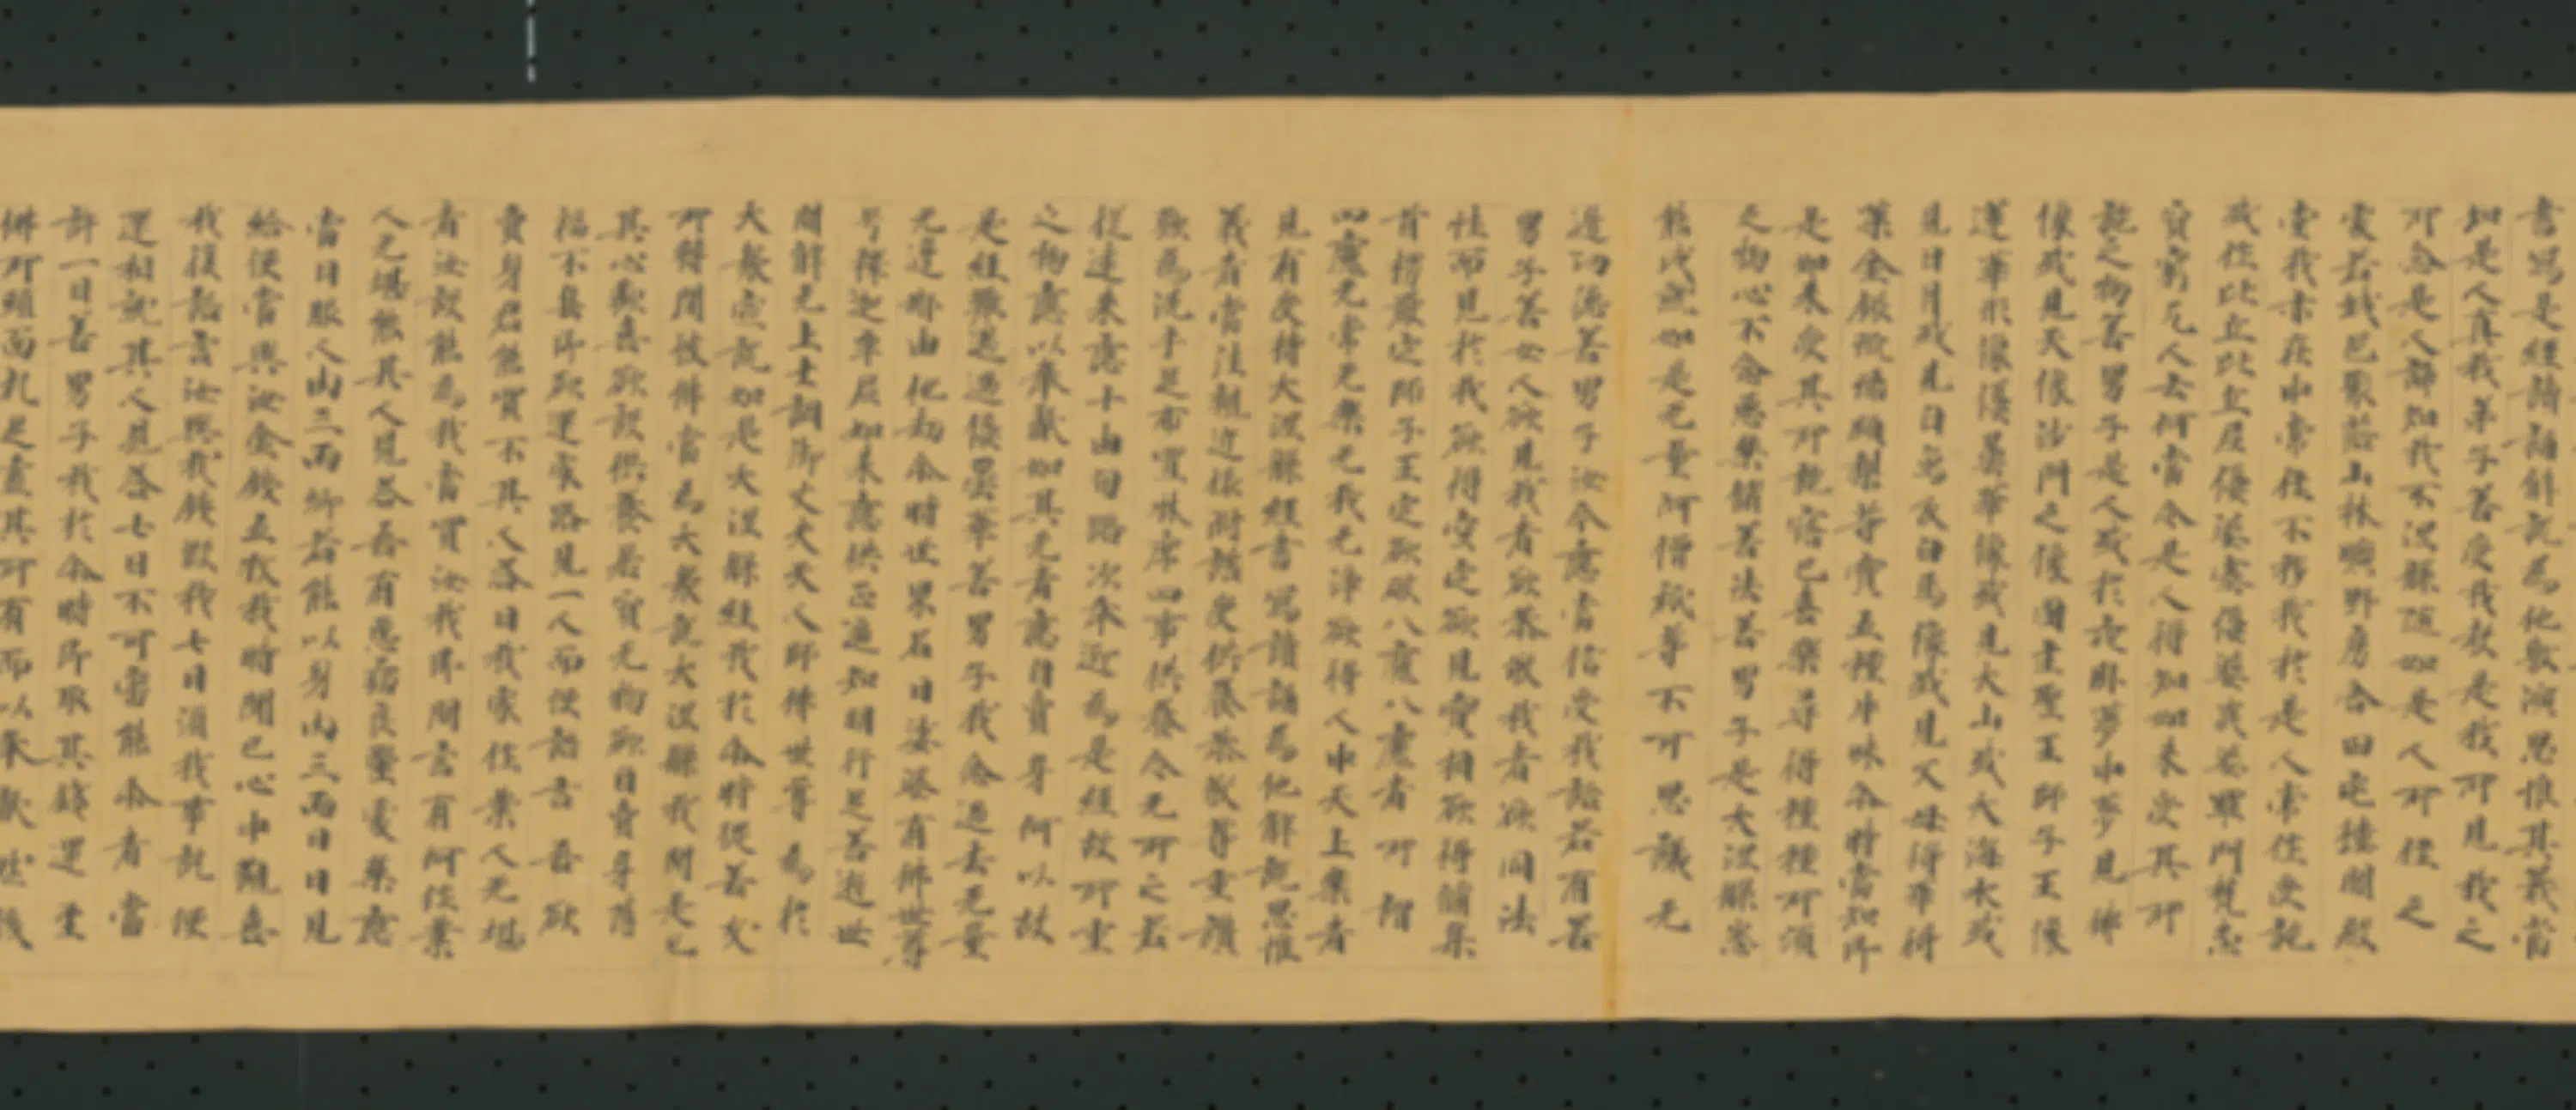 書寫是經讀誦解說為他敷演思惟其義當
知是人真我弟子善受我教是我所見我之
所念是人諦知我不涅槃随如是人所住之
處若城邑聚落山林曠野房舍田宅樓閣殿
堂我亦在中常住不移我於是人常作受施
或作比丘比丘尼優婆塞優婆夷婆羅門梵志
貧窮乞人云何當令是人得知如來受其所
施之物善男子是人或於夜卧夢中夢見佛
像或見天像沙門之像國主聖王師子王像
蓮華形像優曇華像或見大山或大海水或
見日月或見白象及白馬像或見父母得華得
菓金銀琉璃頗梨等寶五種牛味尒時當知即
是如來受其所施寤已喜樂尋得種種所須
之物心不念惡樂脩善法善男子是大涅槃悉
能成就如是无量阿僧祇等不可思議无
邊功德善男子汝今應當信受我語若有善
男子善女人欲見我者欲恭敬我者欲同法
性而見於我欲得空定欲見實相欲得脩集
首楞嚴定師子王定欲破八魔八魔者所謂
四魔无常无樂无我无淨欲得人中天上樂者
見有受持大涅槃經書寫讀誦為他解說思惟
義者當往親近依附諮受供養恭敬尊重讚
歎為洗手足布置牀席四事供養令无所乏若
從遠來應十由旬路次奉迎為是經故所重
之物應以奉獻如其无者應自賣身何以故
是經難遇過優曇華善男子我念過去无量
无邊那由他劫尒時世界名曰娑婆有佛世尊
号釋迦牟尼如來應供正遍知明行足善逝世
間解无上士調御丈夫天人師佛世尊為於
大衆宣說如是大涅槃經我於尒時從善友
所轉聞彼佛當為大衆說大涅槃我聞是已
其心歡喜欲設供養居貧无物欲自賣身薄
福不售即欲還家路見一人而便語言吾欲
賣身君能買不其人答曰我家作業人无堪
者汝設能為我當買汝我即問言有何作業
人无堪能其人見答吾有惡病良醫處藥應
當日服人肉三兩卿若能以身肉三兩日日見
給便當與汝金錢五枚我時聞已心中歡喜
我復語言汝與我錢假我七日須我事訖便
還相就其人見答七日不可審能尒者當
許一日善男子我於尒時即取其錢還至
佛所頭面礼足盡其所有而以奉獻然後